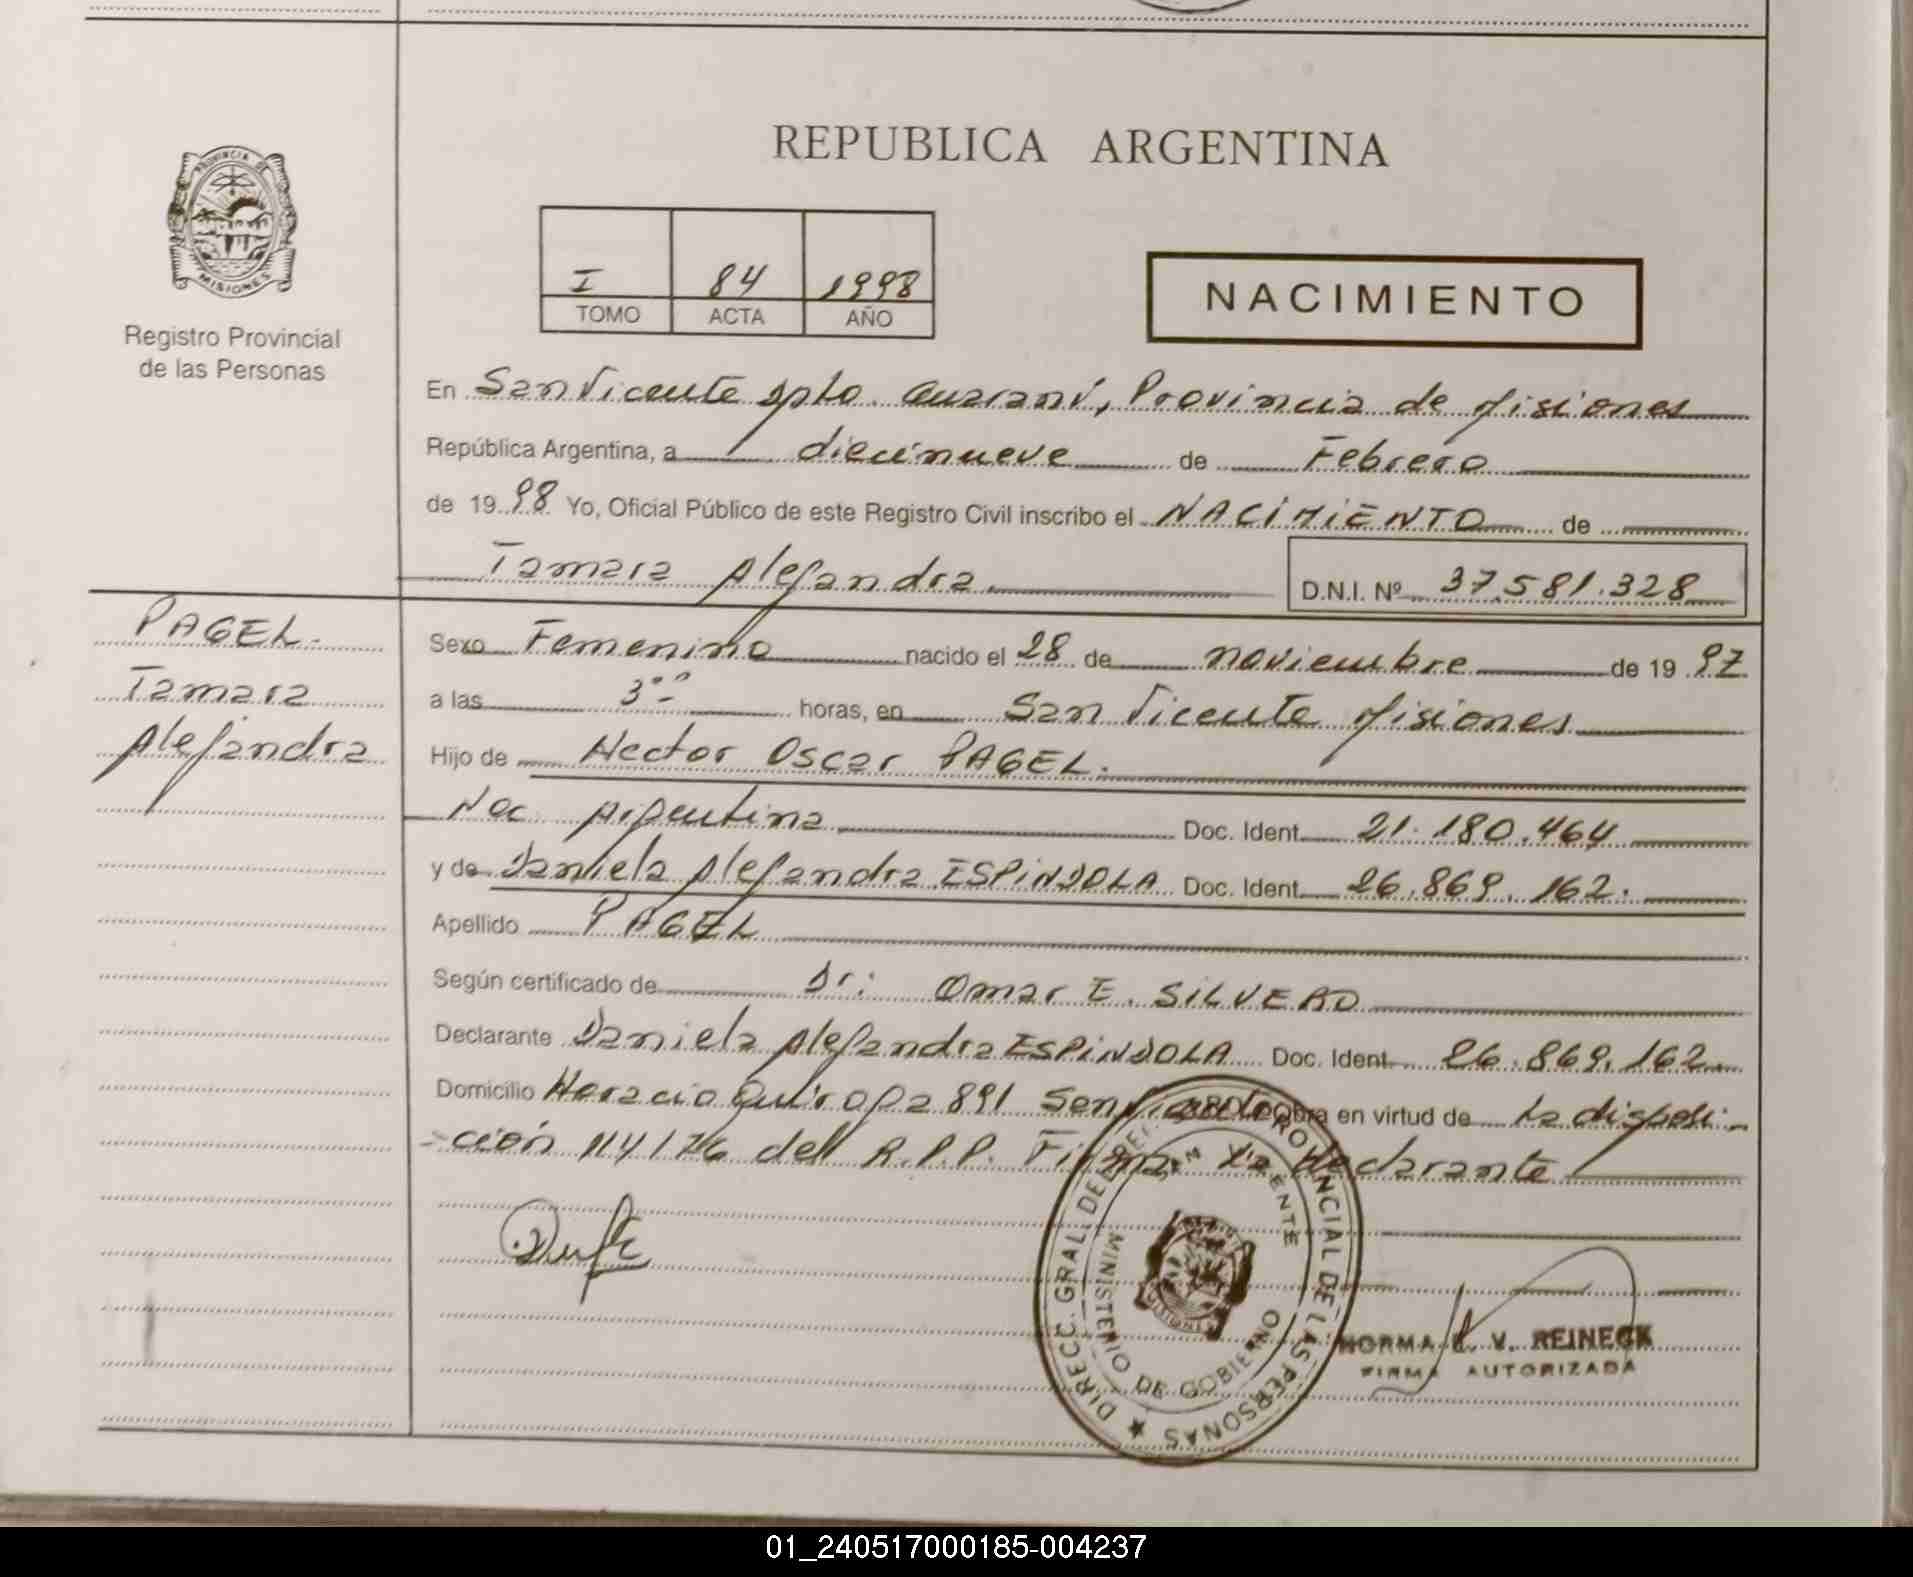 REPUBLICA ARGENTINA
PROVINCIA DE
MISIONES
Registro Provincial
de las Personas
I 84 1998
TOMO ACTA AÑO
NACIMIENTO
En San Vicente Dpto. Guaraní, Provincia de Misiones
República Argentina, a diecinueve de Febrero
de 1998 Yo, Oficial Público de este Registro Civil inscribo el NACIMIENTO de
Tamara Alejandra
D.N.I. Nº 37.581.328
PAGEL.
Tamara
Alejandra
Sexo Femenino nacido el 28 de noviembre de 1997
a las 3ºº horas, en San Vicente Misiones
Hijo de Hector Oscar PAGEL.
Nac. Argentina Doc. Ident. 21.180.464
y de Daniela Alejandra ESPINDOLA Doc. Ident. 26.869.162.
Apellido PAGEL
Según certificado de Dr: Omar E. SILVERO
Declarante Daniela Alejandra ESPINDOLA Doc. Ident. 26.869.162.
Domicilio Horacio Quiroga 891 San Vicente Obra en virtud de La disposi-
-ción 114/76 del R.P.P. Firma La declarante
DIRECC. GRAL. DEL REG. PROVINCIAL DE LAS PERSONAS
MINISTERIO DE GOBIERNO
SAN VICENTE
NORMA V. REINECK
FIRMA AUTORIZADA
01_240517000185-004237